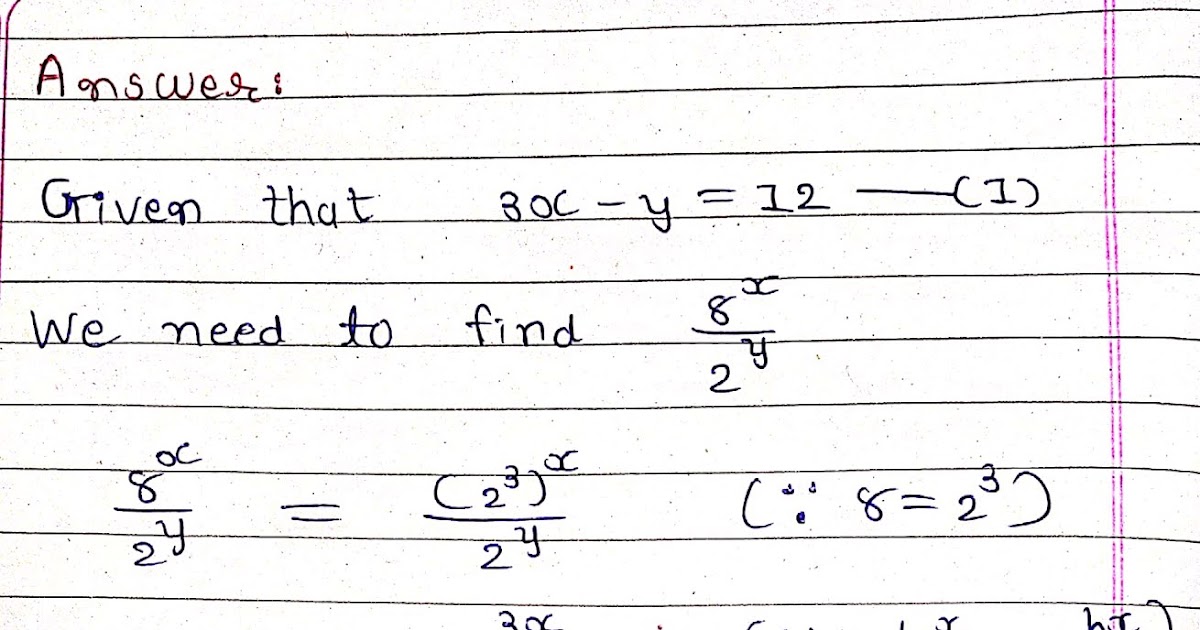 Answer:
Given that 3x - y = 12 —(I)
We need to find 8^x / 2^y
8^x / 2^y = (2^3)^x / 2^y (∵ 8 = 2^3)
3x